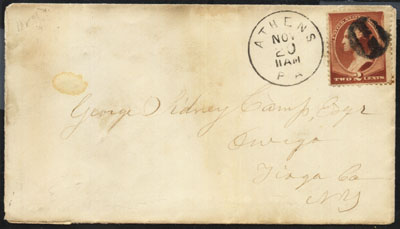 ATHENS
NOV
20
11AM
PA
TWO 2 CENTS
George Sidney Camp, Esqr
Owego
Tioga Co
NY